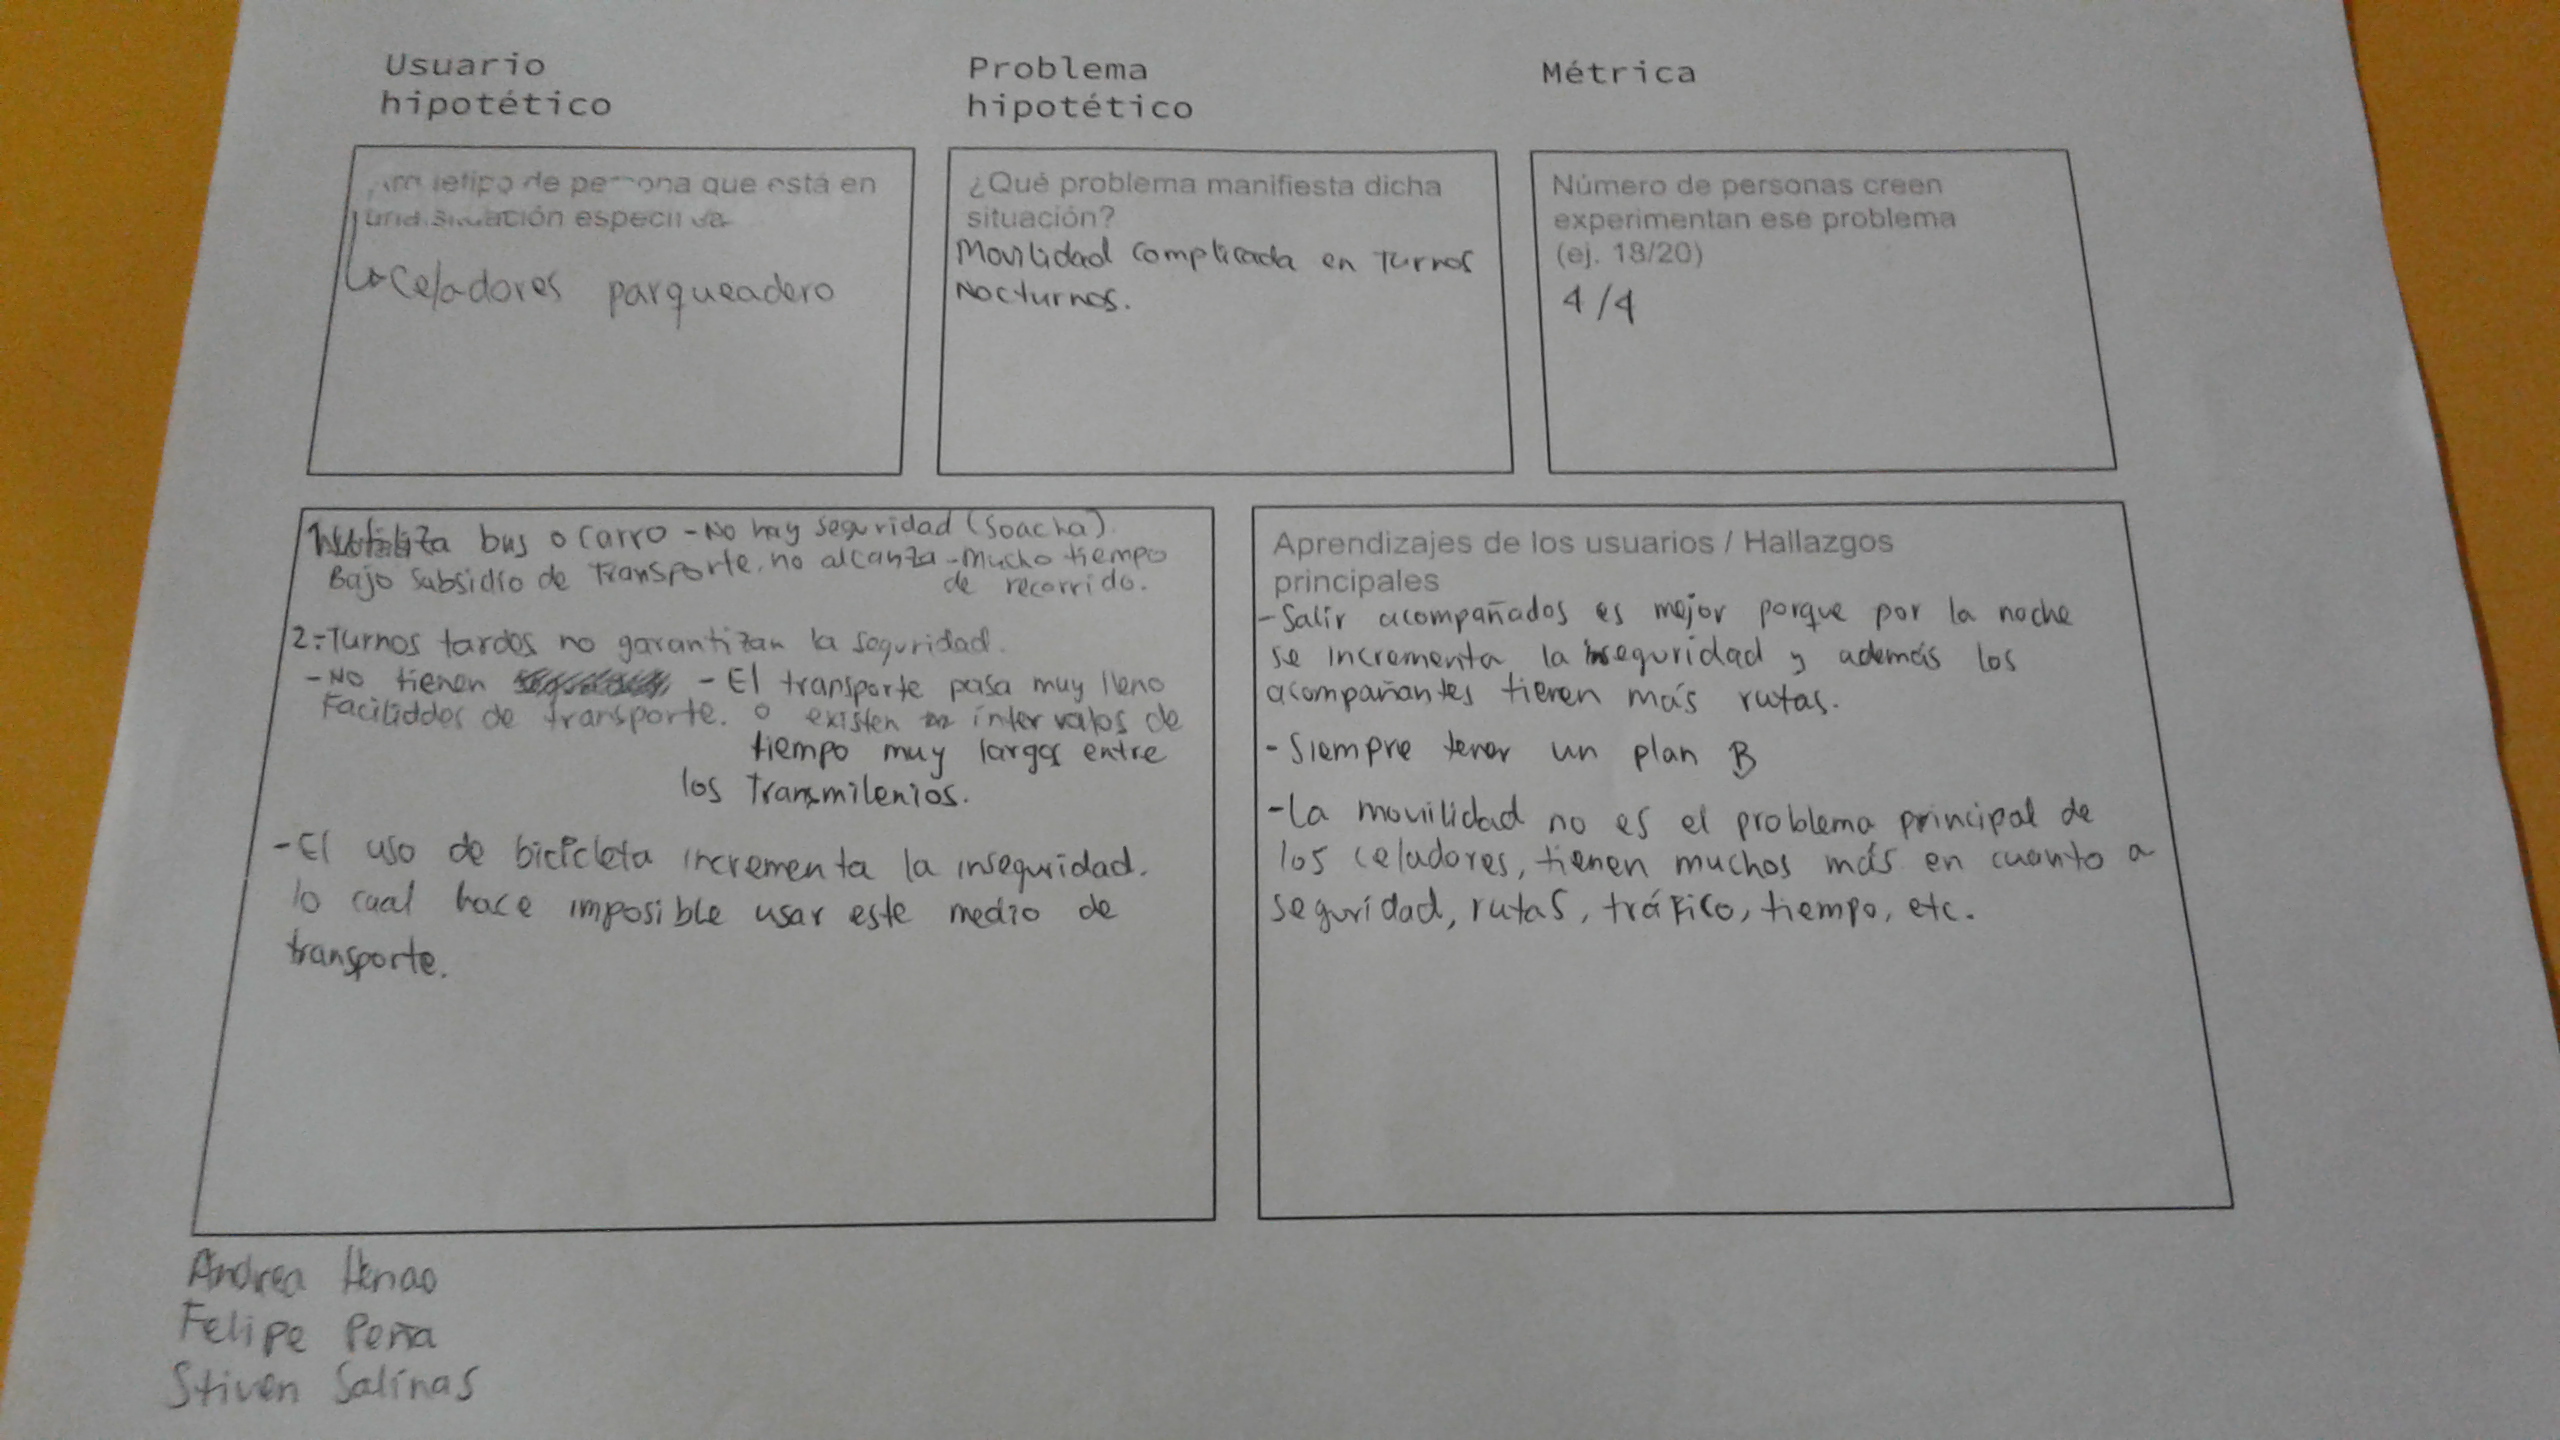 Usuario
hipotético
de persona que está en
una situación
Celadores parqueadero
Problema
hipotético
¿Qué problema manifiesta dicha
situación?
Movilidad complicada en Turnos
Nocturnos.
Métrica
Número de personas creen
experimentan ese problema
(ej. 18/20)
4/4
utiliza bus o carro - No hay seguridad (Soacha).
Bajo subsidio de Transporte, no alcanza - mucho tiempo
de recorrido.
2:-Turnos tardes no garantizan la seguridad.
- No tienen - El transporte pasa muy lleno
Faciliddes de transporte. o existen intervalos de
tiempo muy largos entre
los Transmilenios.
- El uso de bicicleta incrementa la inseguridad.
lo cual hace imposible usar este medio de
transporte.
Aprendizajes de los usuarios / Hallazgos
principales
- Salir acompañados es mejor porque por la noche
se incrementa la inseguridad y además los
acompañantes tienen más rutas.
- Siempre tener un plan B
- La movilidad no es el problema principal de
los celadores, tienen muchos más en cuanto a
seguridad, rutas, tráfico, tiempo, etc.
Andrea Henao
Felipe Peña
Stiven Salinas